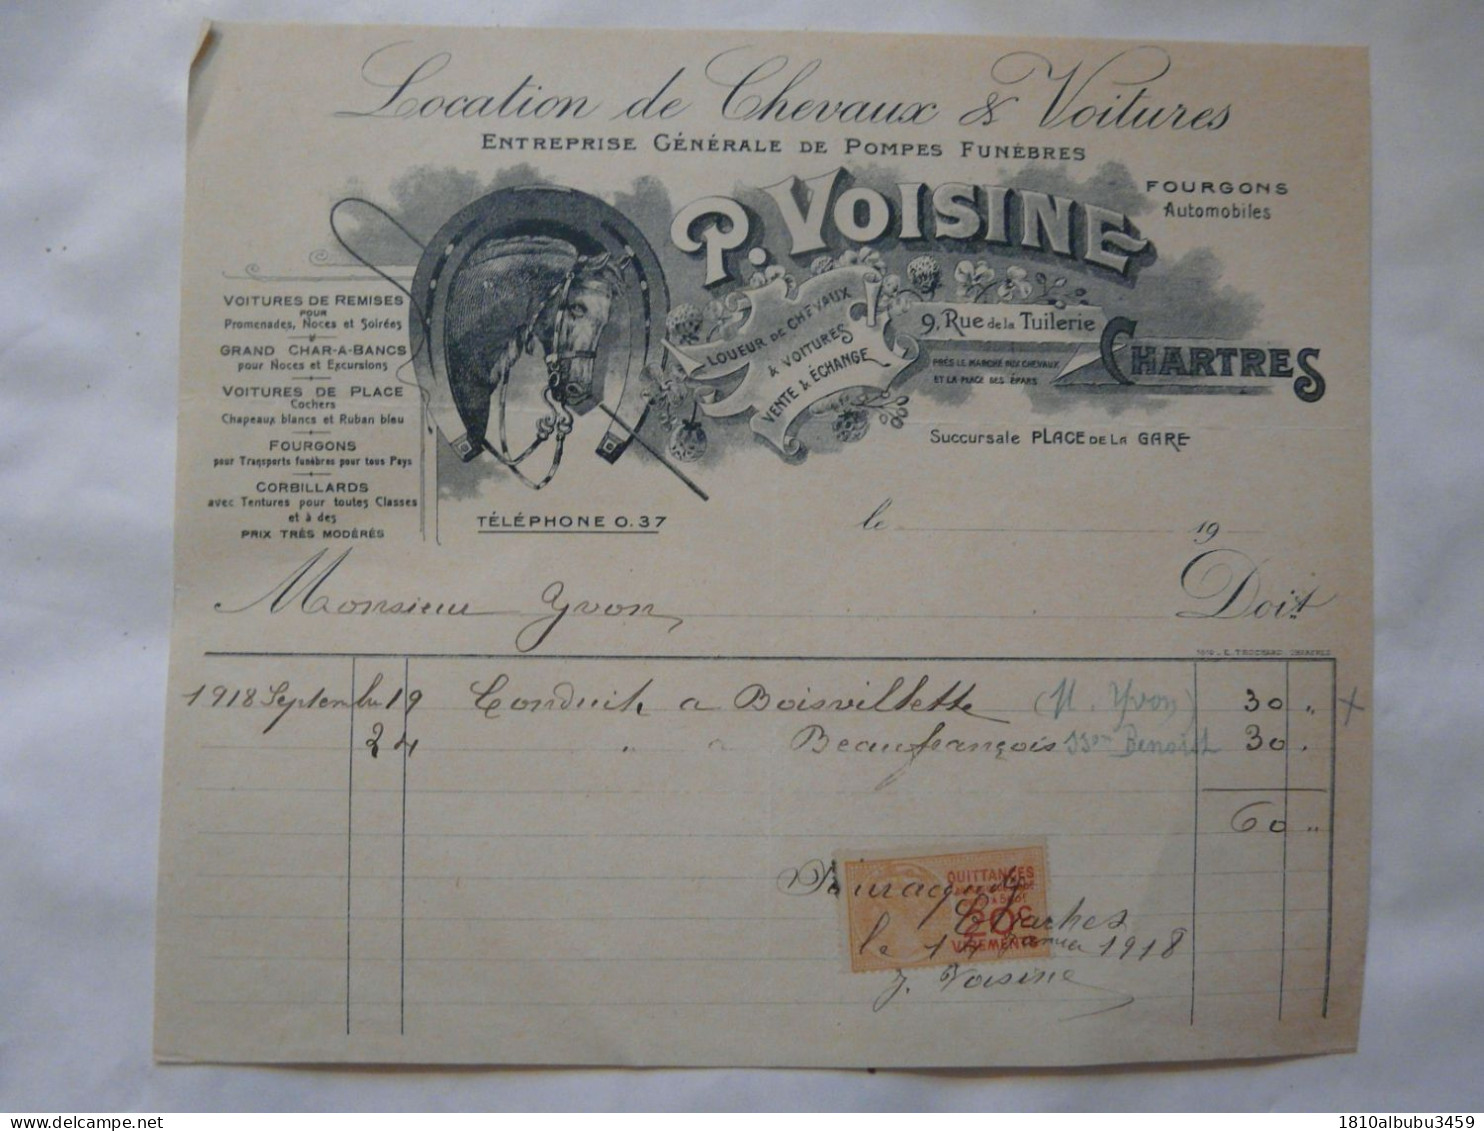 Location de Chevaux & Voitures
ENTREPRISE GÉNÉRALE DE POMPES FUNÈBRES
P. VOISINE
FOURGONS
Automobiles
VOITURES DE REMISES
POUR
Promenades, Noces et Soirées
GRAND CHAR-A-BANCS
pour Noces et Excursions
VOITURES DE PLACE
Cochers
Chapeaux blancs et Ruban bleu
FOURGONS
pour Transports funèbres pour tous Pays
CORBILLARDS
avec Tentures pour toutes Classes
et à des
PRIX TRÈS MODÉRÉS
LOUEUR DE CHEVAUX
& VOITURES
VENTE & ÉCHANGE
9, Rue de la Tuilerie
PRÈS LE MARCHÉ AUX CHEVAUX
ET LA PLACE DES ÉPARS
CHARTRES
Succursale PLACE DE LA GARE
TÉLÉPHONE 0.37
le 19
Monsieur Yvon Doit
1918 Septembre 19 Conduit a Boisvillette (M. Yvon) 30 „ x
24 „ a Beaufrançois Benoist 30 „
60 „
Pour acquit
QUITTANCES
20c
VIREMENTS
Chartres
le 14 Janvier 1918
Voisine
1810albubu3459